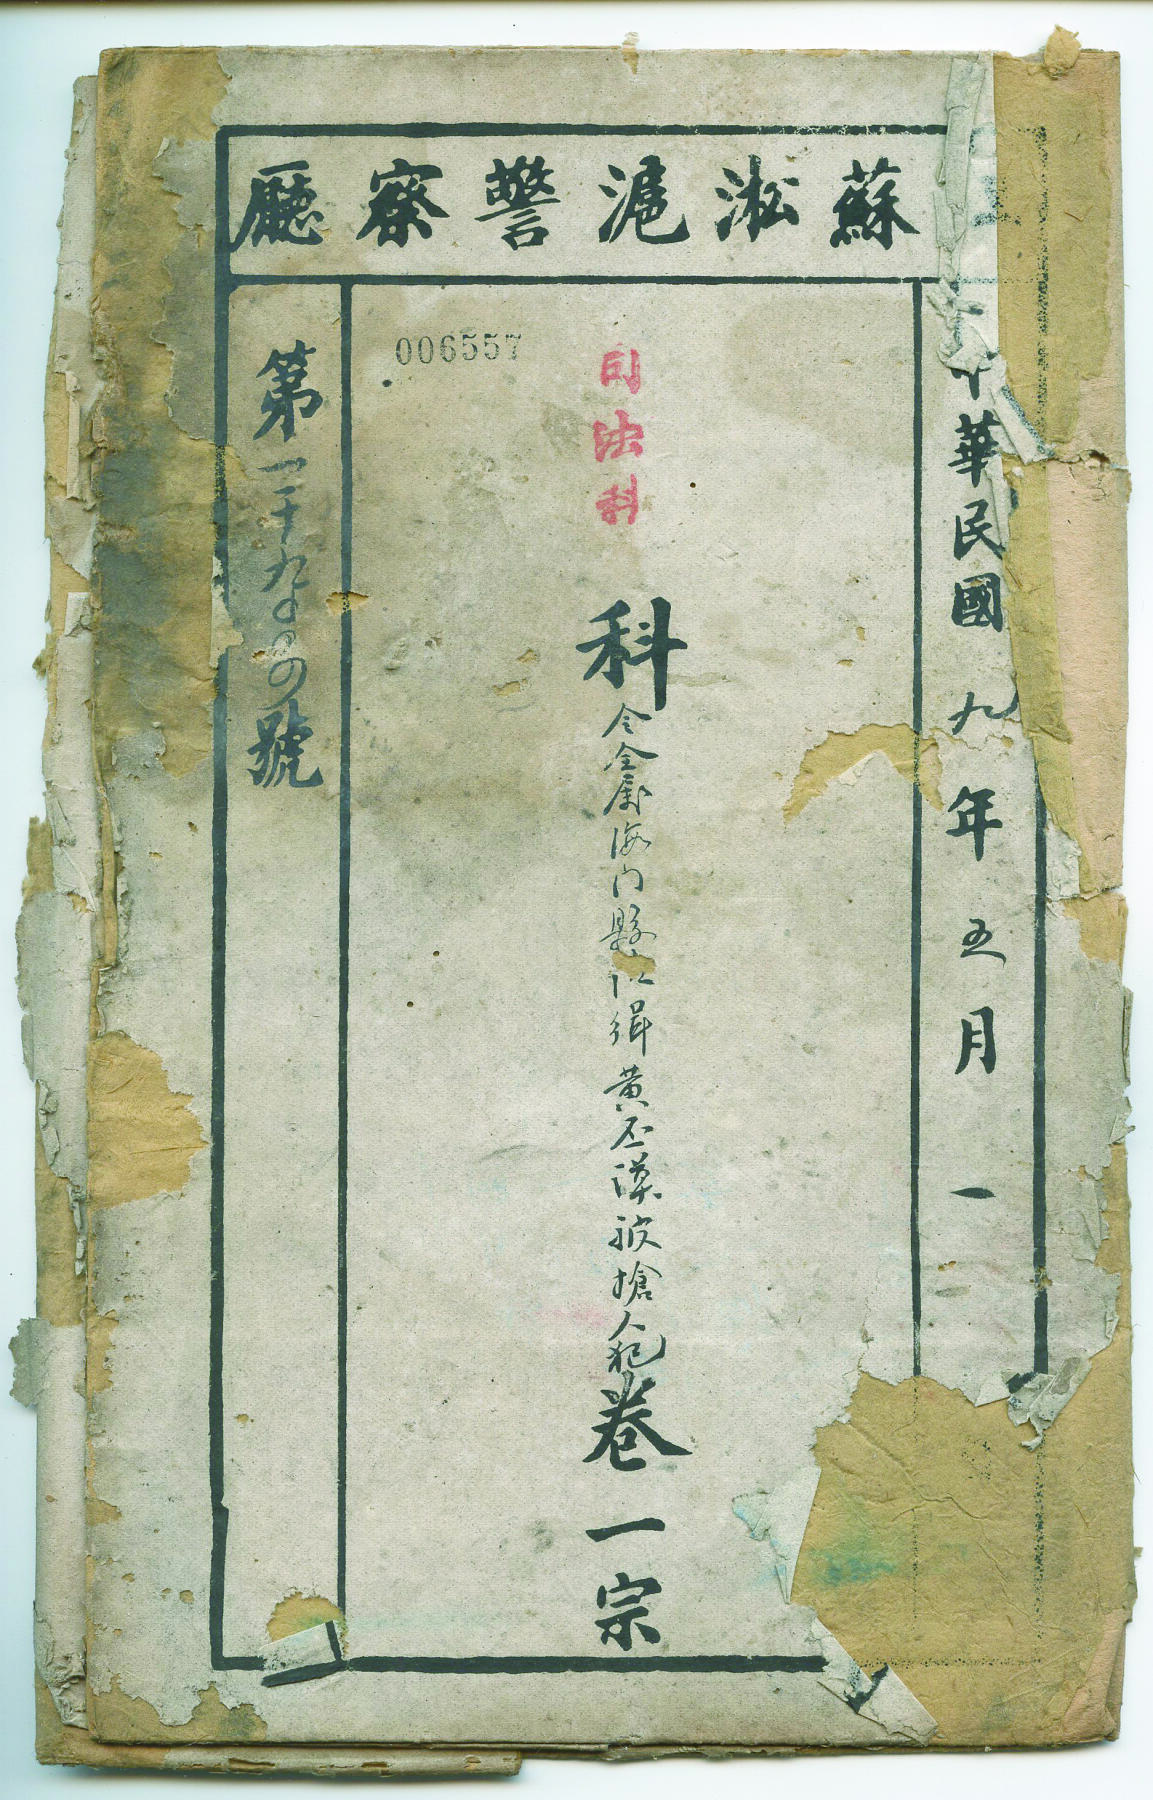 蘇淞滬警察廳
中華民國九年五月一
司法科
科令金屬海門縣 緝黃丕漢被搶人犯卷一宗
006557
第一千九百 號